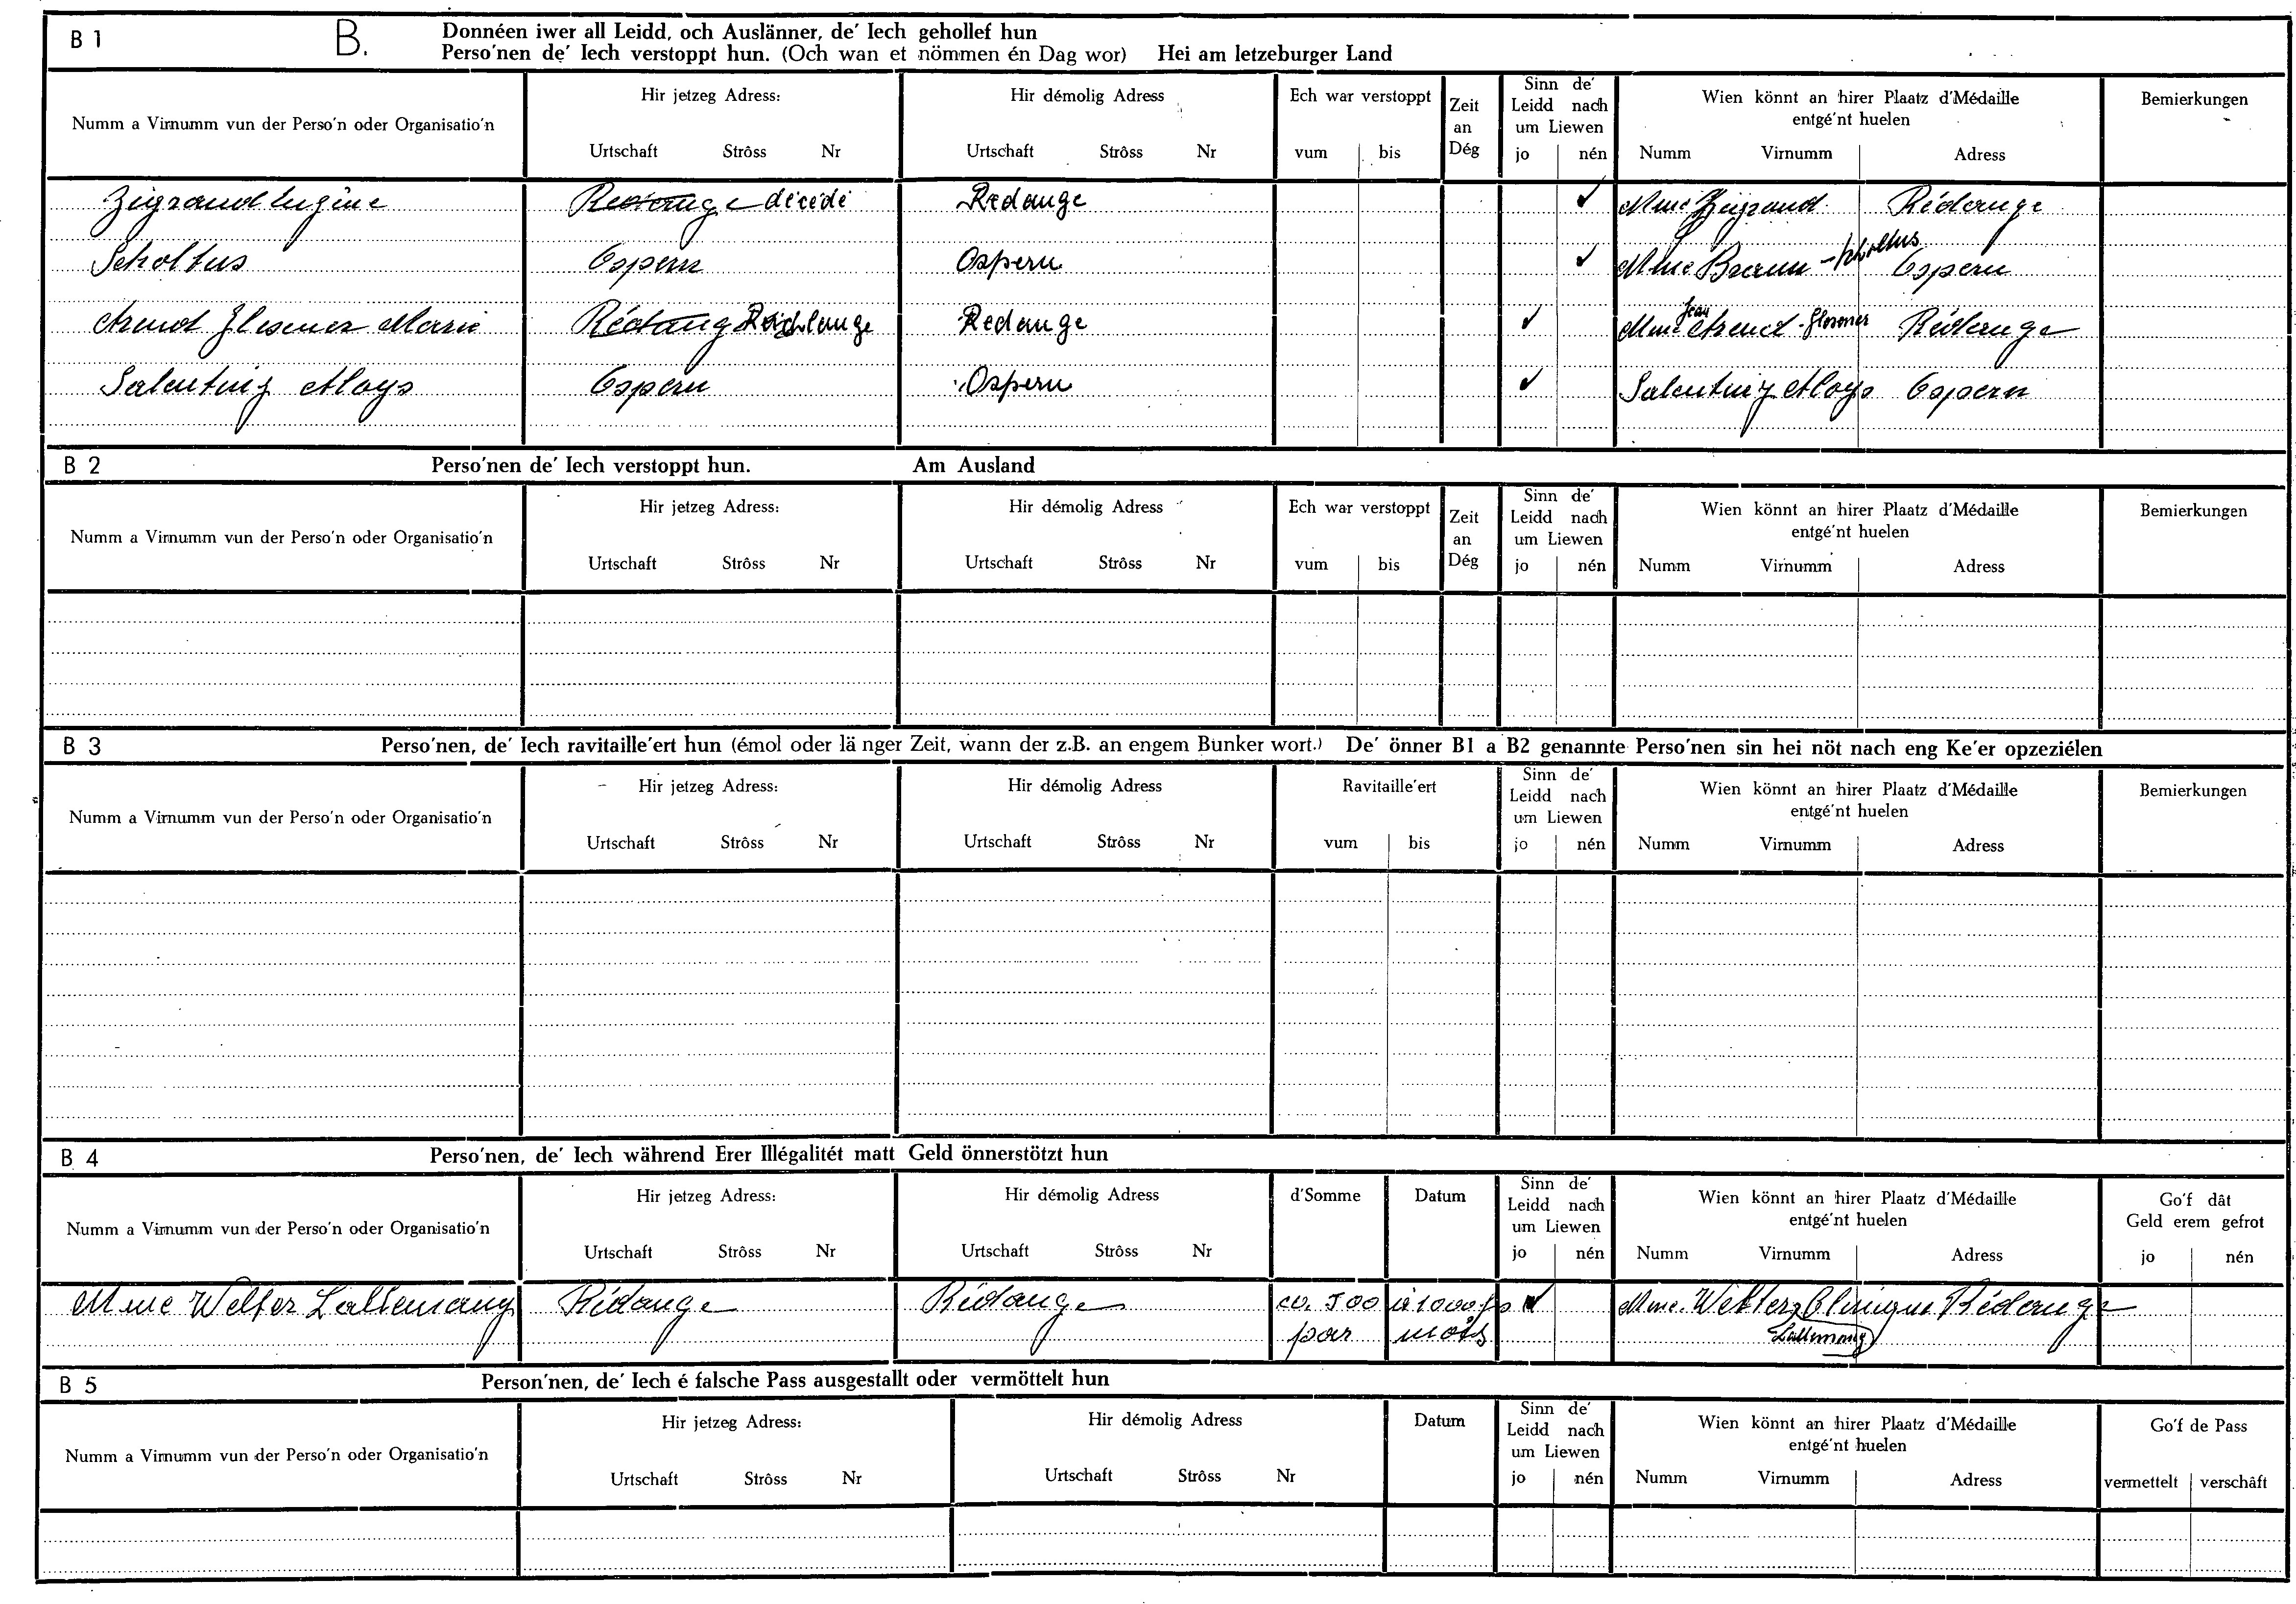 B 1 B. Donnéen iwer all Leidd, och Auslänner, de' Iech gehollef hun
Perso'nen de' Iech verstoppt hun. (Och wan et nömmen én Dag wor) Hei am letzeburger Land
Numm a Virnumm vun der Perso'n oder Organisatio'n
Hir jetzeg Adress:
Urtschaft Strôss Nr
Hir démolig Adress
Urtschaft Strôss Nr
Ech war verstoppt
vum bis
Zeit
an
Dég
Sinn de'
Leidd nach
um Liewen
jo nén
Wien könnt an hirer Plaatz d'Médaille
entgé'nt huelen
Numm Virnumm Adress
Bemierkungen
Zigrand Eugène Redange décédé Redange ✓ Mme Zigrand Rédange
Scholtus Ospern Ospern ✓ Mme Braun - Scholtus Ospern
Arend Glesener Marie Rédange Reichlange Redange ✓ Mme Jean Arend - Glesener Rédange
Salentiny Aloys Ospern Ospern ✓ Salentiny Aloys Ospern
B 2 Perso'nen de' Iech verstoppt hun. Am Ausland
Numm a Virnumm vun der Perso'n oder Organisatio'n
Hir jetzeg Adress:
Urtschaft Strôss Nr
Hir démolig Adress
Urtschaft Strôss Nr
Ech war verstoppt
vum bis
Zeit
an
Dég
Sinn de'
Leidd nach
um Liewen
jo nén
Wien könnt an hirer Plaatz d'Médaille
entgé'nt huelen
Numm Virnumm Adress
Bemierkungen
B 3 Perso'nen, de' Iech ravitaille'ert hun (émol oder länger Zeit, wann der z.B. an engem Bunker wort.) De' önner B1 a B2 genannte Perso'nen sin hei nöt nach eng Ke'er opzeziélen
Numm a Virnumm vun der Perso'n oder Organisatio'n
Hir jetzeg Adress:
Urtschaft Strôss Nr
Hir démolig Adress
Urtschaft Strôss Nr
Ravitaille'ert
vum bis
Sinn de'
Leidd nach
um Liewen
jo nén
Wien könnt an hirer Plaatz d'Médaille
entgé'nt huelen
Numm Virnumm Adress
Bemierkungen
B 4 Perso'nen, de' Iech während Erer Illégalitét matt Geld önnerstötzt hun
Numm a Virnumm vun der Perso'n oder Organisatio'n
Hir jetzeg Adress:
Urtschaft Strôss Nr
Hir démolig Adress
Urtschaft Strôss Nr
d'Somme
Datum
Sinn de'
Leidd nach
um Liewen
jo nén
Wien könnt an hirer Plaatz d'Médaille
entgé'nt huelen
Numm Virnumm Adress
Go'f dât
Geld erem gefrot
jo nén
Mme Welter Lallemang Rédange Rédange ca. 500 à 1000 frs ✓ Mme. Welter Clinique Rédange
par mois Lallemang
B 5 Person'nen, de' Iech é falsche Pass ausgestallt oder vermöttelt hun
Numm a Virnumm vun der Perso'n oder Organisatio'n
Hir jetzeg Adress:
Urtschaft Strôss Nr
Hir démolig Adress
Urtschaft Strôss Nr
Datum
Sinn de'
Leidd nach
um Liewen
jo nén
Wien könnt an hirer Plaatz d'Médaille
entgé'nt huelen
Numm Virnumm Adress
Go'f de Pass
vermettelt verschâft